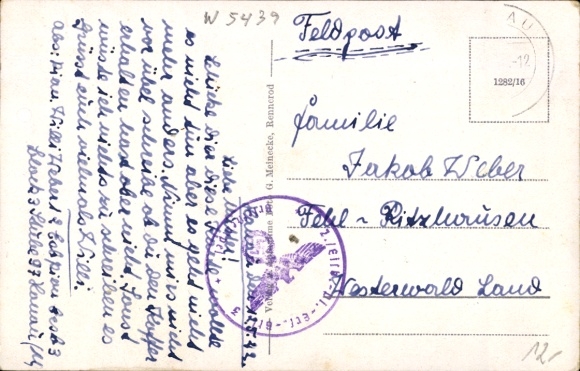 W 5439
Feldpost
1282/16
Familie
Jakob Weber
Fehl-Ritzhausen
Westerwald Land
12.-
G. Meinecke, Rennerod
Liebe Mutter!
Schicke dir diese Karte wollte
es nicht tun aber es geht nicht
mehr anders. Nimm mirs nicht
vor übel schreibe ob du den Koffer
erhalten hast oder nicht. Sonst
wüste ich nichts zu schreiben es
grüsst euch vielmals Willi
Abs: Pion. Willi Weber 2
Hanau/M